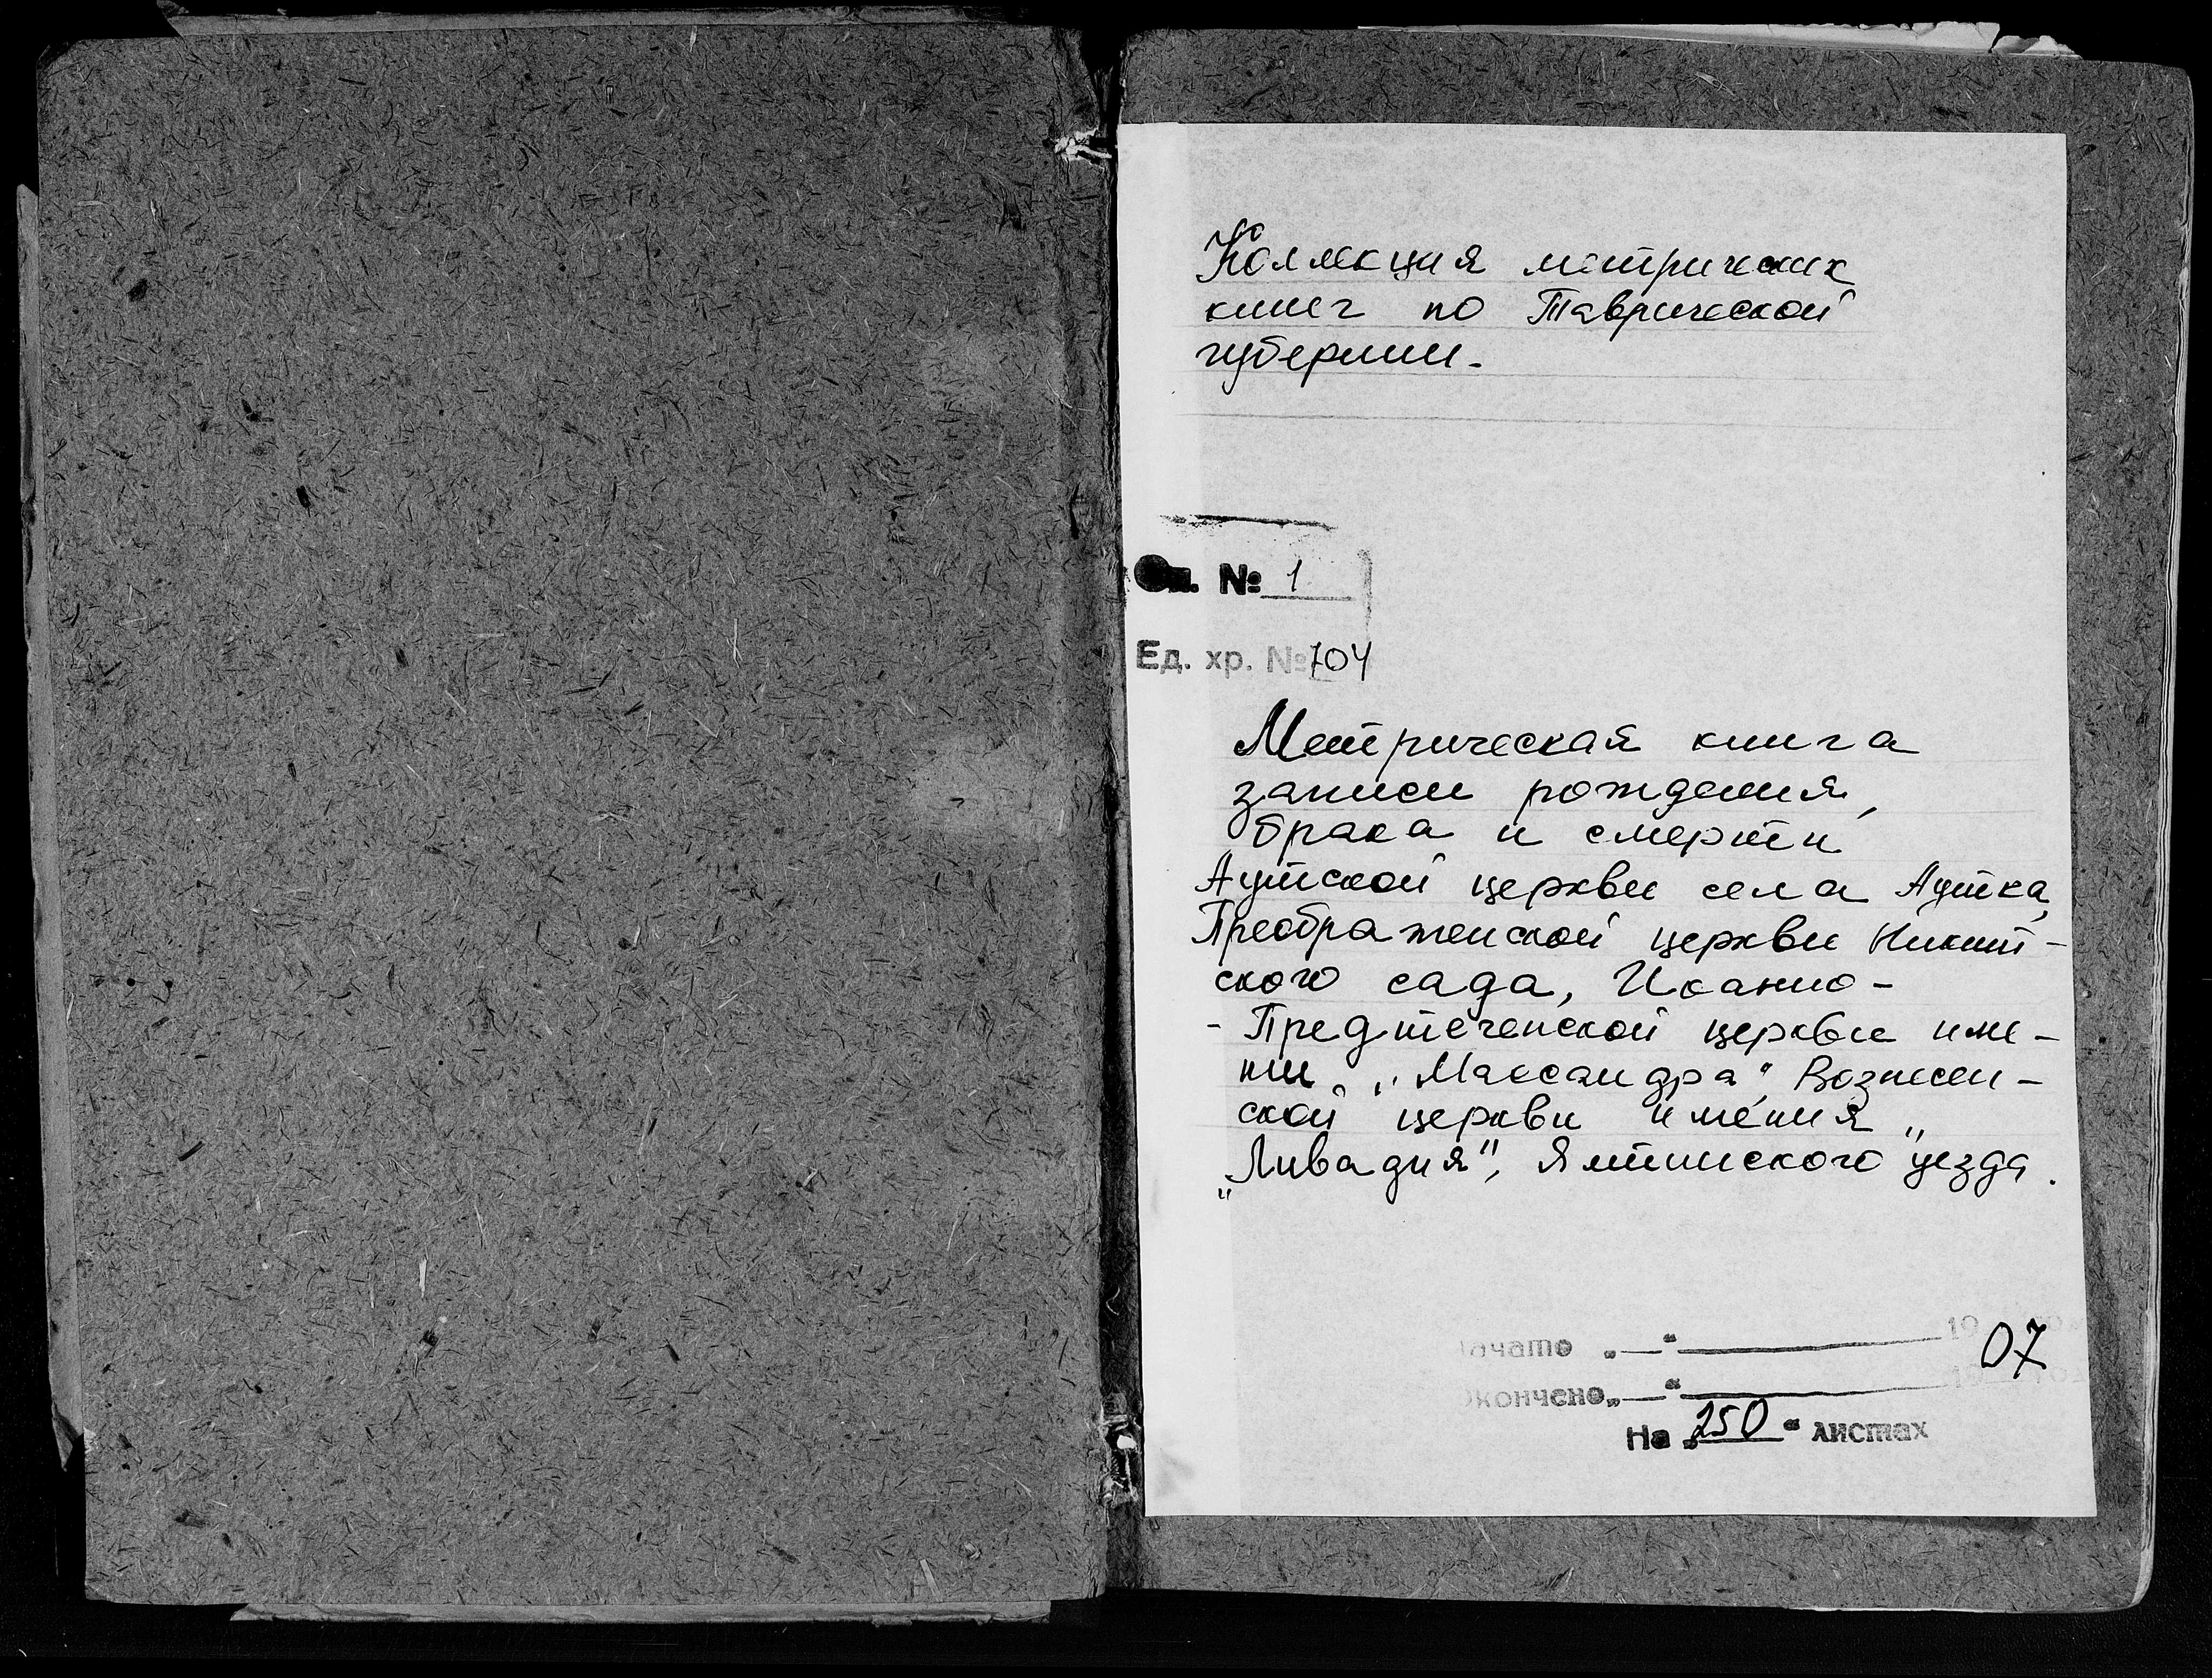 Коллекция метрических
книг по Таврической
губернии.
Оп. № 1
Ед. хр. № 704
Метрическая книга
записи рождения,
брака и смерти
Аутской церкви села Аутка,
Преображенской церкви Никит-
ского сада, Иоанно-
- Предтеченской церкви име-
нии „Массандра" Вознесен-
ской церкви имения „
„Ливадия", Ялтинского уезда.
Начато „—" 19 07
Окончено „—" 19
На „250" листах